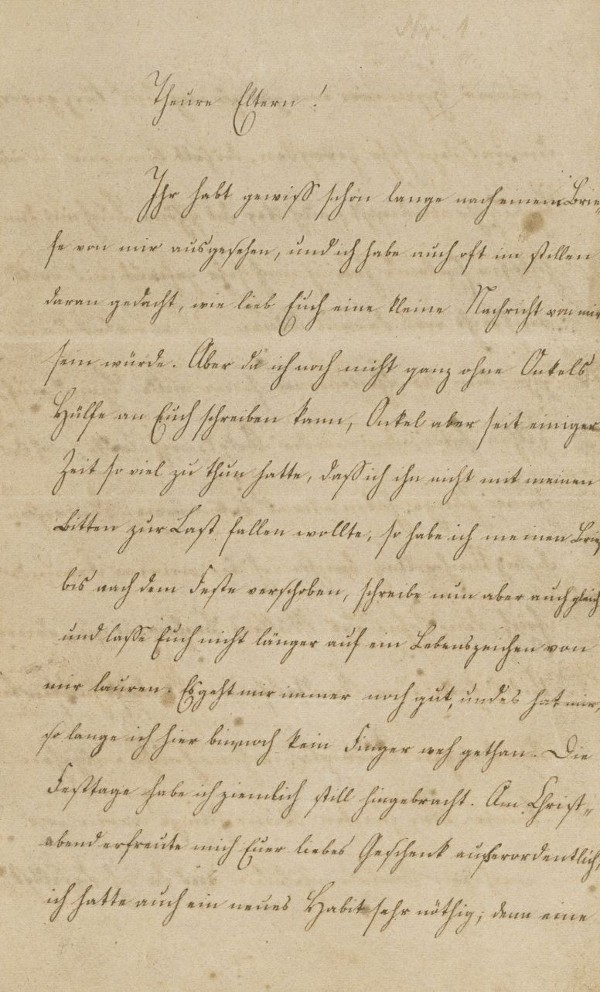 Nr. 1
Theure Eltern!
Ihr habt gewiß schon lange nach einem Brie-
fe von mir ausgesehen, und ich habe auch oft im stillen
daran gedacht, wie lieb Euch eine kleine Nachricht von mir
sein würde. Aber da ich noch nicht ganz ohne Onkels
Hülfe an Euch schreiben kann, Onkel aber seit einiger
Zeit so viel zu thun hatte, daß ich ihn nicht mit meinen
Bitten zur Last fallen wollte, so habe ich meinen Brief
bis nach dem Feste verschoben, schreibe nun aber auch gleich
und lasse Euch nicht länger auf ein Lebenszeichen von
mir lauren. Es geht mir immer noch gut, und es hat mir,
so lange ich hier bin, noch kein Finger weh gethan. Die
Festtage habe ich ziemlich still hingebracht. Am Christ-
abend erfreute mich Euer liebes Geschenk außerordentlich,
ich hatte auch ein neues Habit sehr nöthig; denn eine